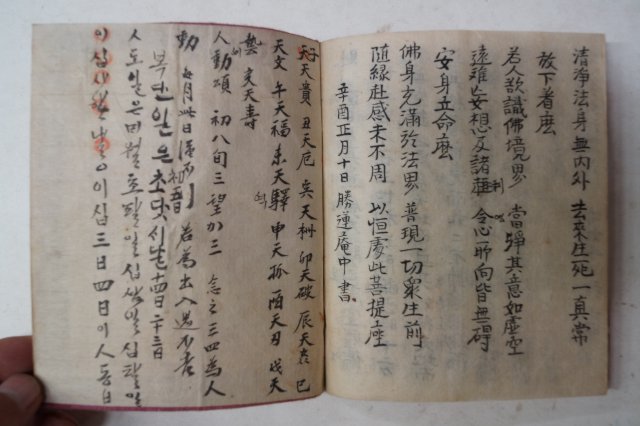 清淨法身無內外 去來生死一真常
放下着麽
若人欲識佛境界 當淨其意如虛空
遠離妄想及諸趣 令心所向皆無碍
安身立命麽
佛身充滿於法界 普現一切衆生前
隨緣赴感未不周 以恒處此菩提座
辛酉正月十日 勝蓮庵中書
子天貴 丑天厄 寅天 卯天破 辰天 巳
天文 午天福 未天驛 申天孤 酉天刃 戌天
藝 亥天壽
人動頌 初八旬三望加三 念之三四為人
動 每月 若為出入
복단일은초 二十三日
人도일은 월 십 일 십팔일
이십 날 이십三日四日이人동日